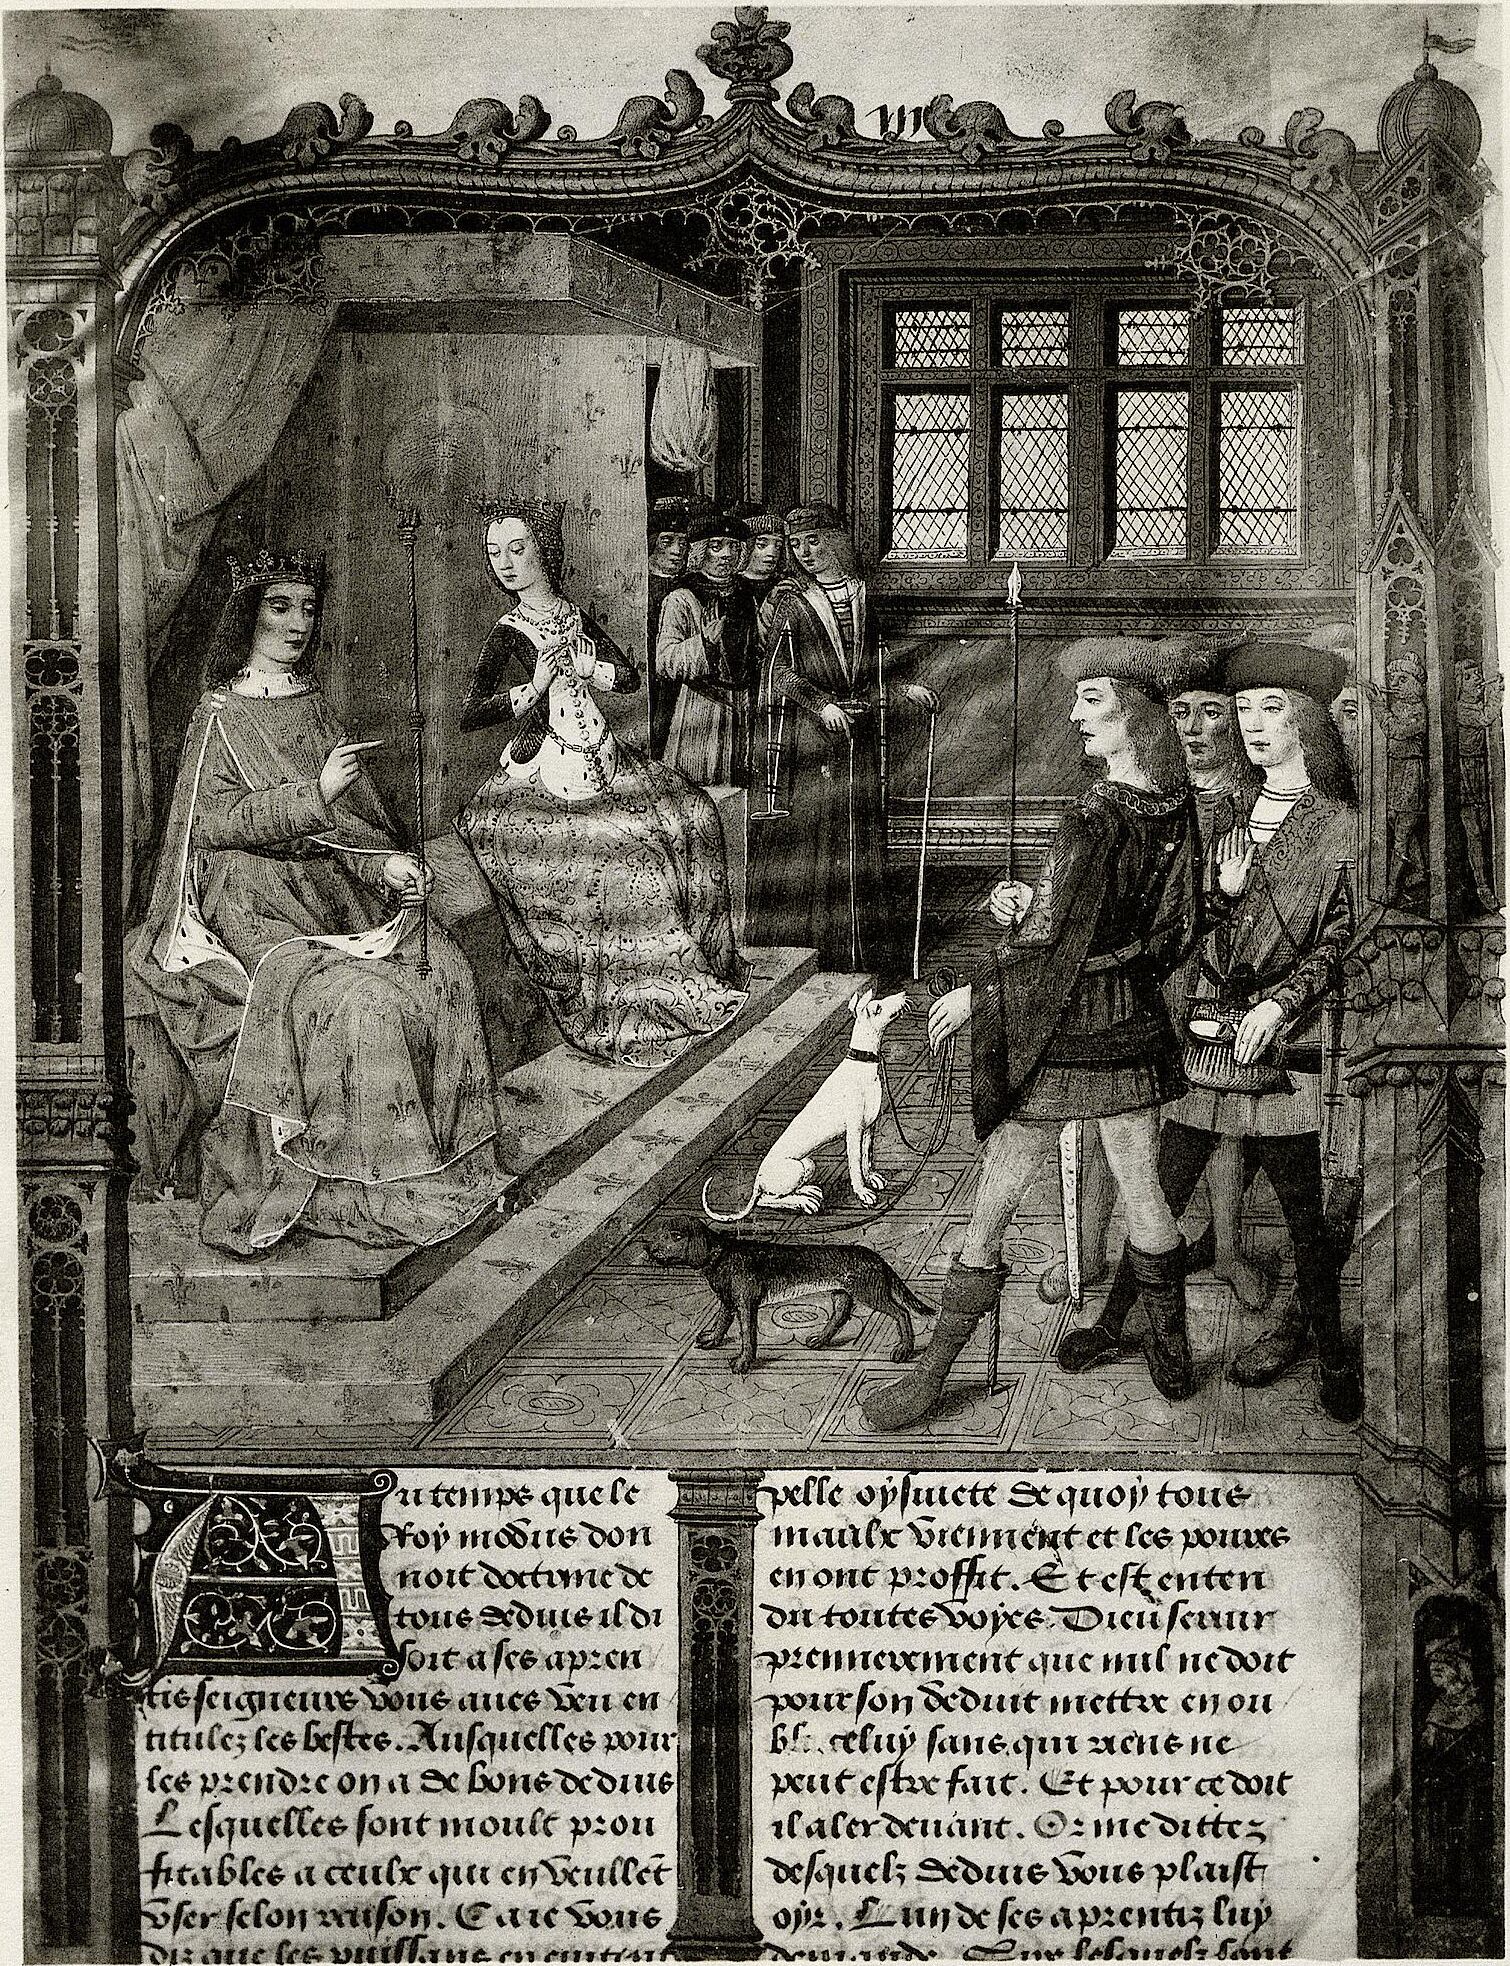 Au temps que le
Roy modus don
noit doctrine de
tous deduis il di
soit a ses apren
tis seigneurs vous aues veu en
titulez les bestes. Ausquelles pour
les prendre on a de bons deduis
Lesquelles sont moult prou
fitables a ceulx qui en veullēt
vser selon raison. Car ie vous
diz que les puissans en euitent
pelle oysiuete de quoy tous
maulx viennent et les poures
en ont proffit. Et est enten
du toutes voyes. Dieu seruir
premierement que nul ne doit
pour son deduit mettre en ou
bly celuy sans qui riens ne
peut estre fait. Et pour ce doit
il aler deuant. Or me dittez
desquelz deduis vous plaist
oyr. Lun de ses aprentiz luy
demande. lesquelz sont